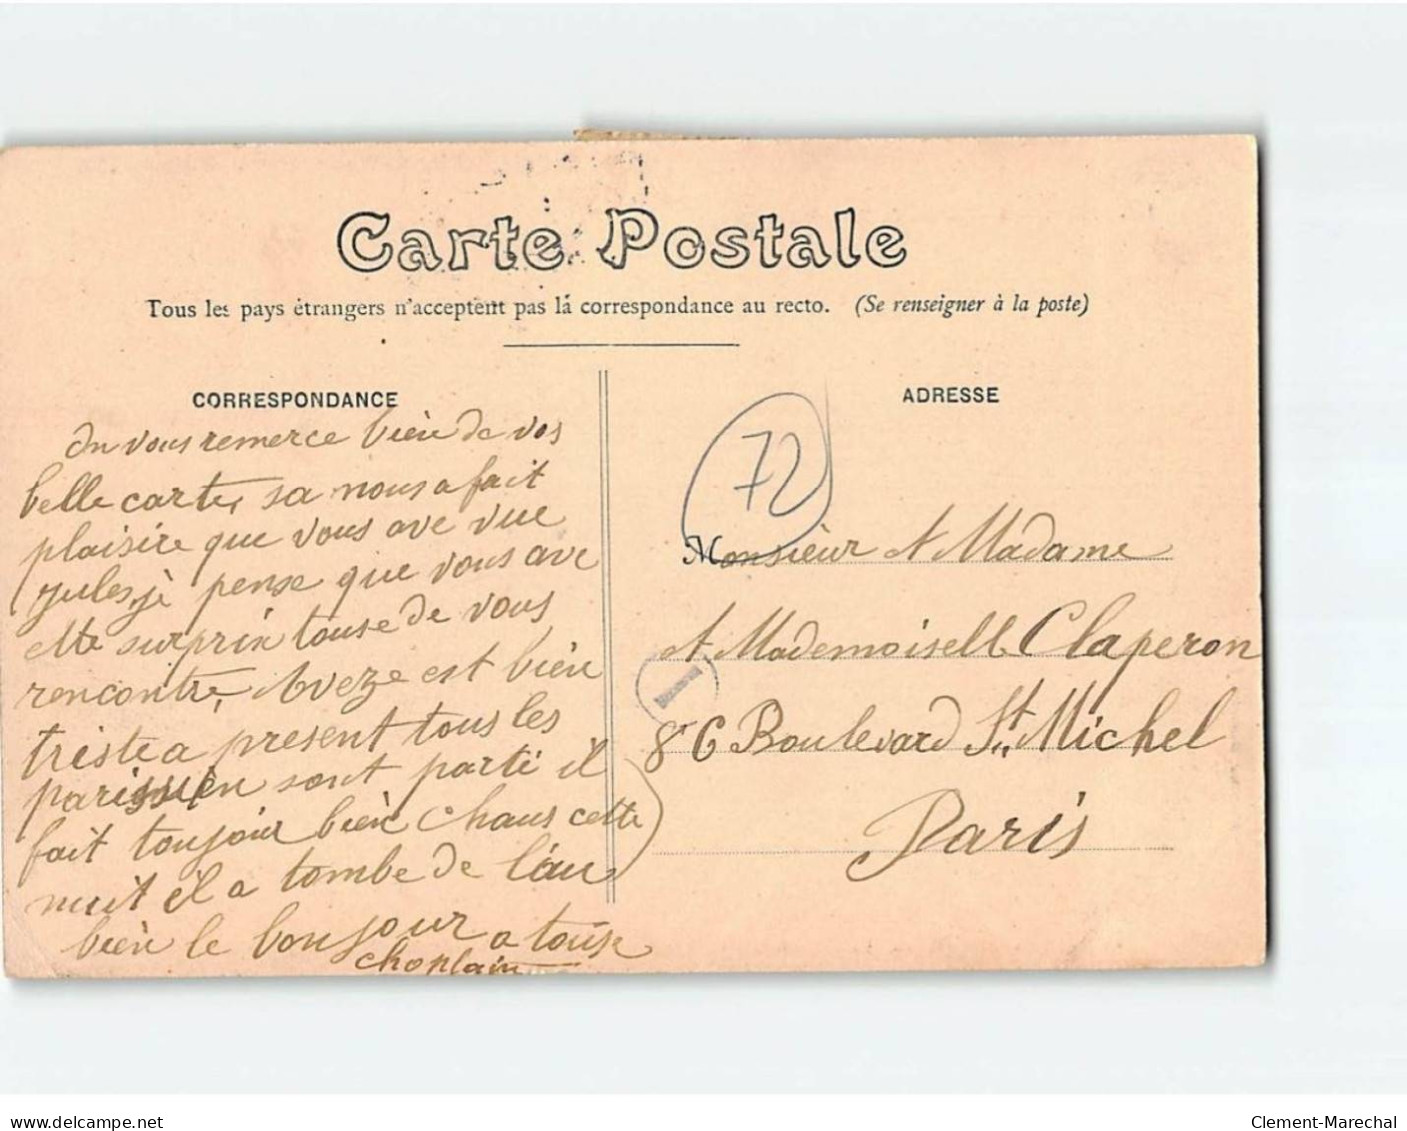 Carte Postale
Tous les pays étrangers n'acceptent pas la correspondance au recto. (Se renseigner à la poste)
CORRESPONDANCE
on vous remerce bien de vos
belle carte, sa nous a fait
plaisire que vous ave vue
jules, jè pense que vous ave
ette surprix touse de vous
rencontre, Aveze est bien
triste a present tous les
parisien sont parti il
fait toujoir bien chaus cette
nuit il a tombe de l'au
bien le bonjour a touse
choplain
ADRESSE
72
Monsieur et Madame
et Mademoiselle Claperon
86 Boulevard St Michel
Paris
1
delcampe.net
Clement-Marechal